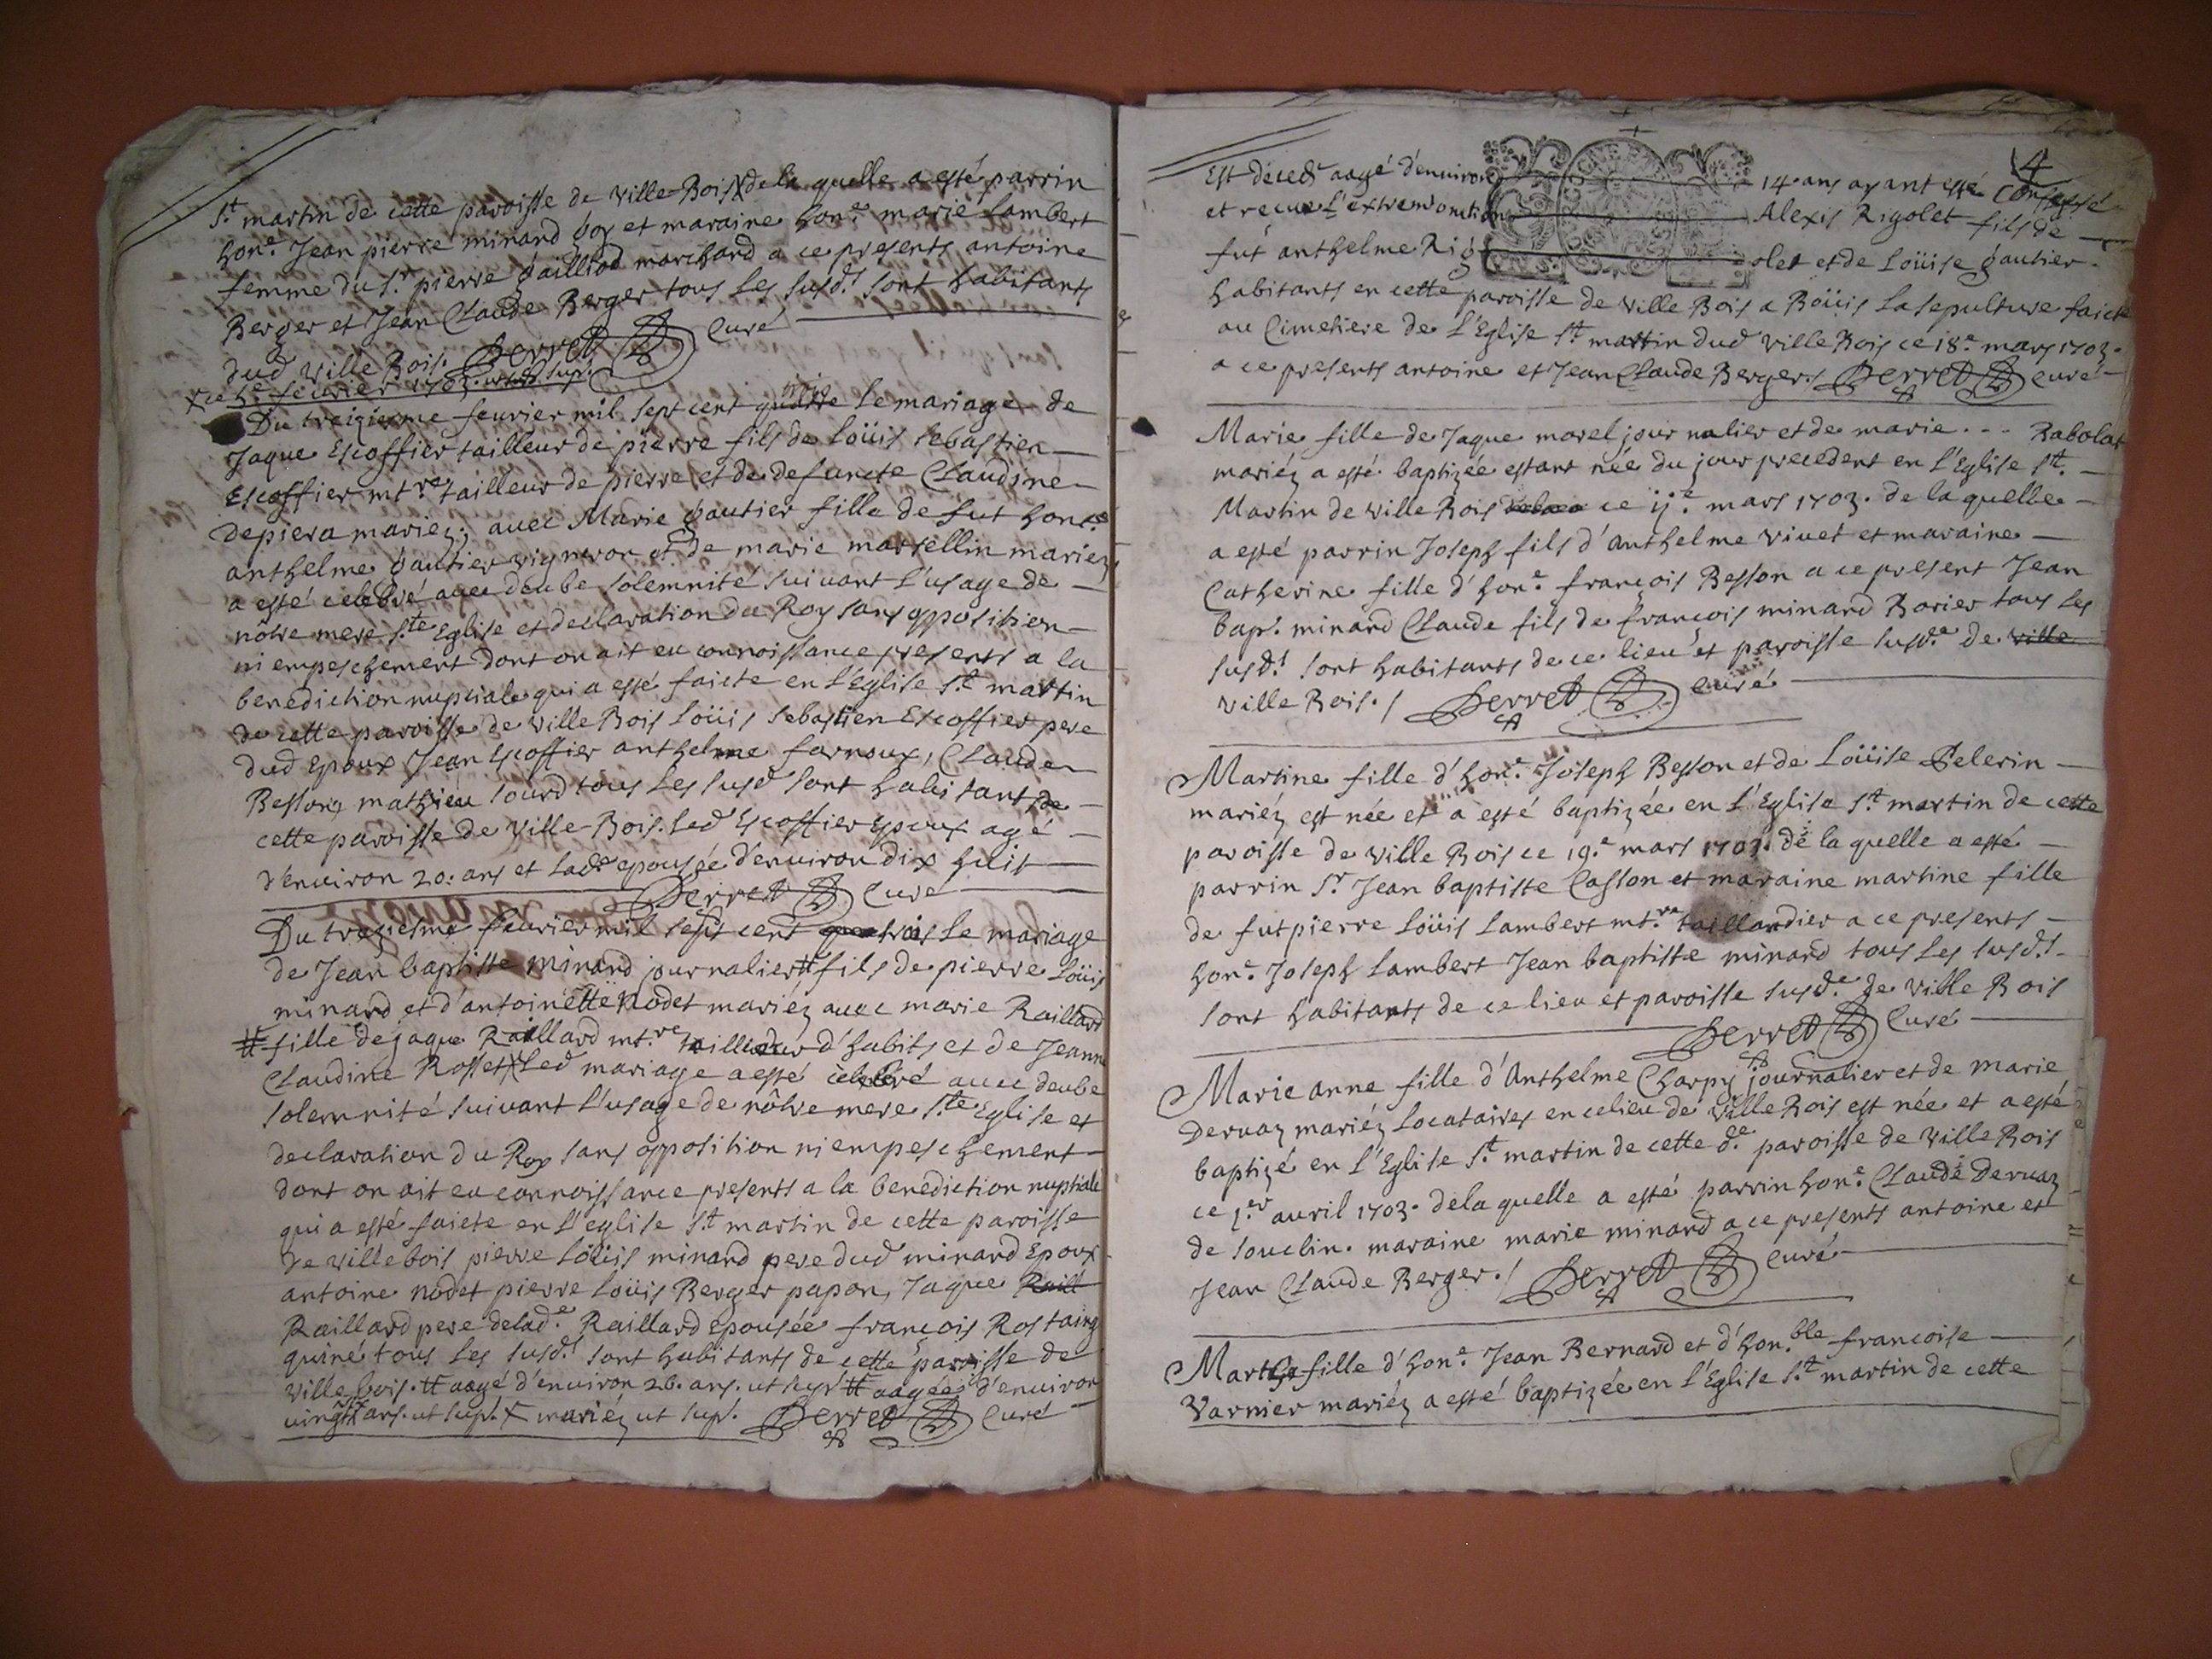 St martin de cette paroisse de Ville-Bois X de la quelle a esté parrin
hon.e Jean pierre minand goy et maraine hon.e marie Lambert
femme du Sr pierre gailliod marchand a ce presents antoine
Berger et Jean Claude Berger tous les susd.ts sont habitants
dud Ville Bois. Perret Curé
Du treizieme feurier mil sept cent quattre trois Le mariage de
Jaque Escoffier tailleur de pierre fils de Loüis sebastien
Escoffier mt.re tailleur de pierre et de defuncte Claudine
depiera mariez; avec Marie gautier fille de fut hon.e
anthelme gautier vigneron et de marie marsellin mariez
a esté celebré avec deube solemnité suivant L'usage de
nôtre mere S.te Eglise et declaration du Roy sans opposition
ni empeschement dont on ait eu connoissance presents a la
benediction nuptiale qui a esté faicte en L'Eglise S.t martin
de cette paroisse de Ville Bois Loüis Sebastien Escoffier pere
dud Epoux Jean Escoffier anthelme farnoux, Claude
Besson, mathieu sourd tous Les susd sont habitants de
cette paroisse de Ville-Bois. Led Escoffier Epoux agé
d'environ 20. ans et Lad.e epousée d'environ dix huit
Perret Curé
Du trezieme feurier mil sept cent qua trois Le mariage
de Jean baptiste minand journalier # fils de pierre Loüis
minand et d'antoinette nodet mariéz avec marie Raillard
# fille de jaque Raillard mt.re tailleur d'habits et de Jeanne
Claudine Rosset X Led mariage a esté celebré avec deube
solemnité suivant L'usage de nôtre mere S.te Eglise et
declaration du Roy sans opposition ni empeschement
dont on ait eu connoissance presents a la benediction nuptiale
qui a esté faicte en L'eglise S.t martin de cette paroisse
de Ville bois pierre Loüis minand pere dud minand Epoux
antoine nodet pierre Loüis Berger papon, Jaque Raill
Raillard pere de lad.e Raillard epousée françois Rostaing
quiné tous Les susd.ts sont habitants de cette paroisse de
Ville bois. # aagé d'environ 26. ans. ut sup.r # aagée d'environ
vingt ans. ut sup.r X mariéz ut sup.r Perret Curé
4
Est decedé aagé d'environ 14 ans ayant esté Confessé
et recu L'extremonction Alexis Rigolet fils de
fut anthelme Rigolet et de Loüise gautier
habitants en cette paroisse de Ville Bois a Boüis La sepulture faicte
au Cimetiere de L'Eglise S.t martin dud Ville Bois ce 18.e mars 1703.
a ce presents antoine et Jean Claude Berger./ Perret Curé
Marie fille de Jaque morel journalier et de marie . . . Rabolat
mariéz a esté baptizée estant née du jour precedent en L'Eglise S.t
Martin de Ville Bois ce ij.e mars 1703. de la quelle
a esté parrin Joseph fils d'Anthelme vivet et maraine
Catherine fille d'hon.e françois Besson a ce present Jean
bap.t minand Claude fils de françois minand Borier tous Les
susd.ts sont habitants de ce lieu et paroisse susd.e de ville
Ville Bois./ Perret Curé
Martine fille d'hon.e Joseph Besson et de Loüise Pelerin
mariéz est née et a esté baptizée en L'Eglise S.t martin de cette
paroisse de Ville Bois ce 19.e mars 1703. de la quelle a esté
parrin S.r Jean baptiste Casson et maraine martine fille
de fut pierre Loüis Lambert mt.re taillandier a ce presents
hon.e Joseph Lambert Jean baptiste minand tous Les susd.ts
sont habitants de ce lieu et paroisse susd.e de Ville Bois
Perret Curé
Marie anne fille d'Anthelme Charpy journalier et de marie
Dervaz mariéz Locataires en ce lieu de Ville Bois est née et a esté
baptizé en L'Eglise S.t martin de cette d.e paroisse de Ville Bois
ce 1.er avril 1703. de la quelle a esté parrin hon.e Claude Dervaz
de souclin. maraine marie minand a ce presents antoine et
Jean Claude Berger./ Perret Curé
Marthe fille d'hon.e Jean Bernard et d'hon.ble francoise
Varnier mariéz a esté baptizée en L'Eglise S.t martin de cette